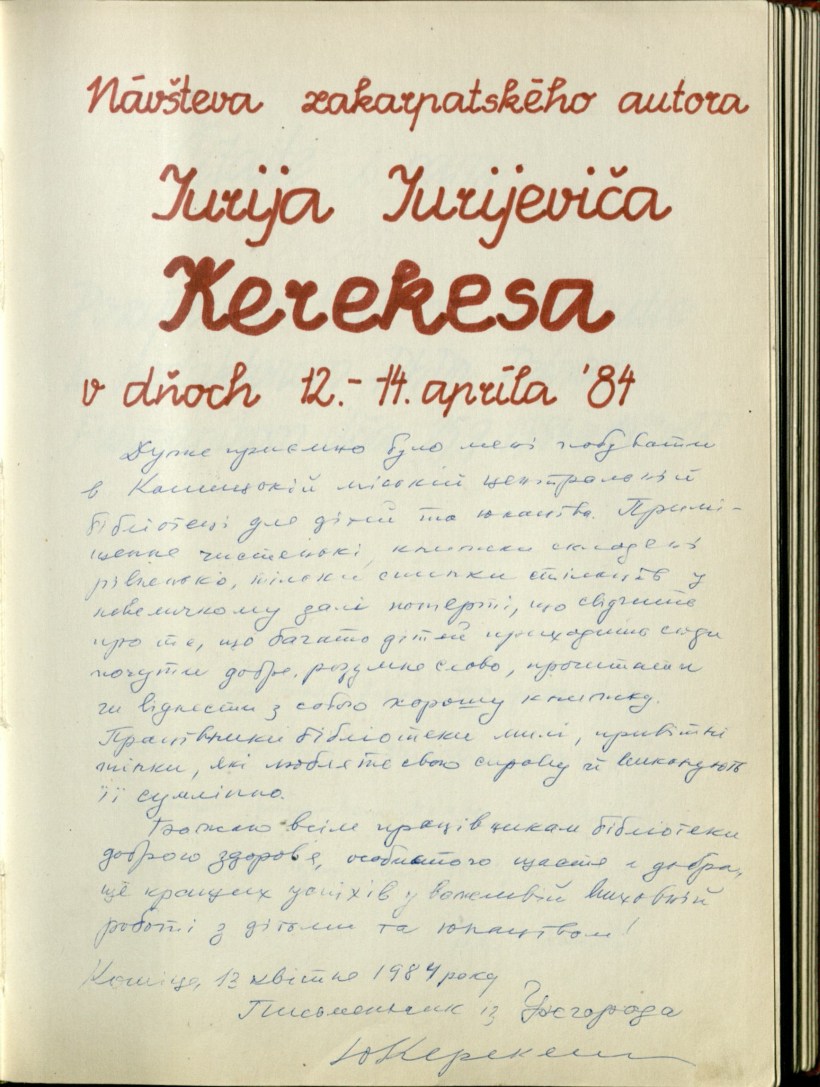 Návšteva zakarpatského autora
Jurija Jurijeviča
Kerekesa
v dňoch 12.-14. apríla '84
Дуже приємно було мені побувати
в Кошицькій міській центральній
бібліотеці для дітей та юнацтва. Примі-
щення чистенькі, книжки складені
рівненько, тільки спинки стільців у
невеличкому залі потерті, що свідчить
про те, що багато дітей приходить сюди
почути добре, розумне слово, прочитати
чи віднести з собою хорошу книжку.
Працівники бібліотеки милі, привітні
жінки, які люблять свою справу й виконують
її сумлінно.
Бажаю всім працівникам бібліотеки
доброго здоров'я, особистого щастя і добра,
ще кращих успіхів у важливій виховній
роботі з дітьми та юнацтвом!
Кошице, 13 квітня 1984 року
Письменник із Ужгорода
Ю Керекеш